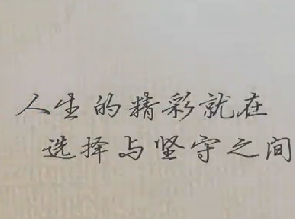 人生的精彩就在
选择与坚守之间